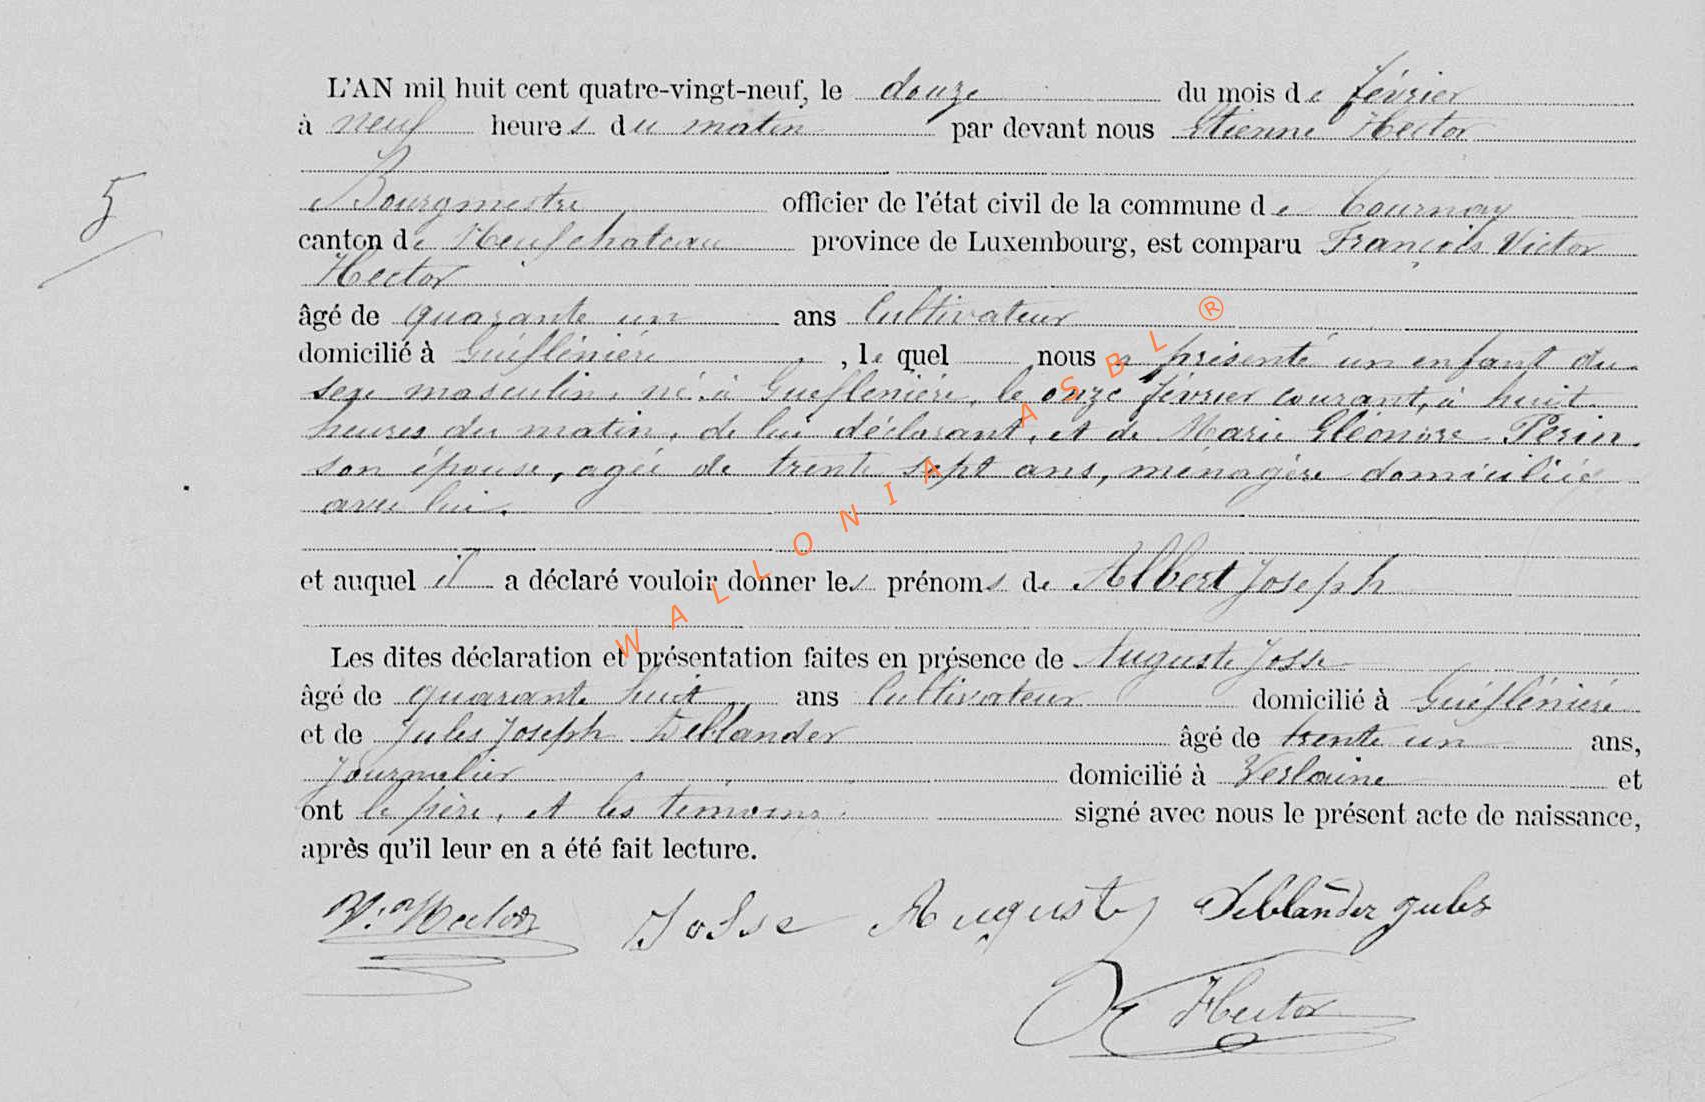 L'AN mil huit cent quatre-vingt-neuf, le douze du mois de février
à neuf heures du matin par devant nous Etienne Hector
Bourgmestre officier de l'état civil de la commune de Tournay
5
canton de Neufchateau province de Luxembourg, est comparu François Victor
Hector
âgé de quarante un ans Cultivateur
domicilié à Gueflénière, le quel nous a présenté un enfant du
sexe masculin, né à Gueflenière, le onze février courant, à huit
heures du matin, de lui déclarant, et de Marie Eléonore Perin
son épouse, agée de trente sept ans, ménagère domiciliée
avec lui.
et auquel il a déclaré vouloir donner les prénoms de Albert Joseph
Les dites déclaration et présentation faites en présence de Auguste Josse
âgé de quarante huit ans Cultivateur domicilié à Gueflénière
et de Jules Joseph Deblander âgé de trente un ans,
Journalier domicilié à Verlaine et
ont le père, et les témoins signé avec nous le présent acte de naissance,
après qu'il leur en a été fait lecture.
V. Hector Josse Auguste Deblander Jules
E Hector
WALLONIA ASBL ®